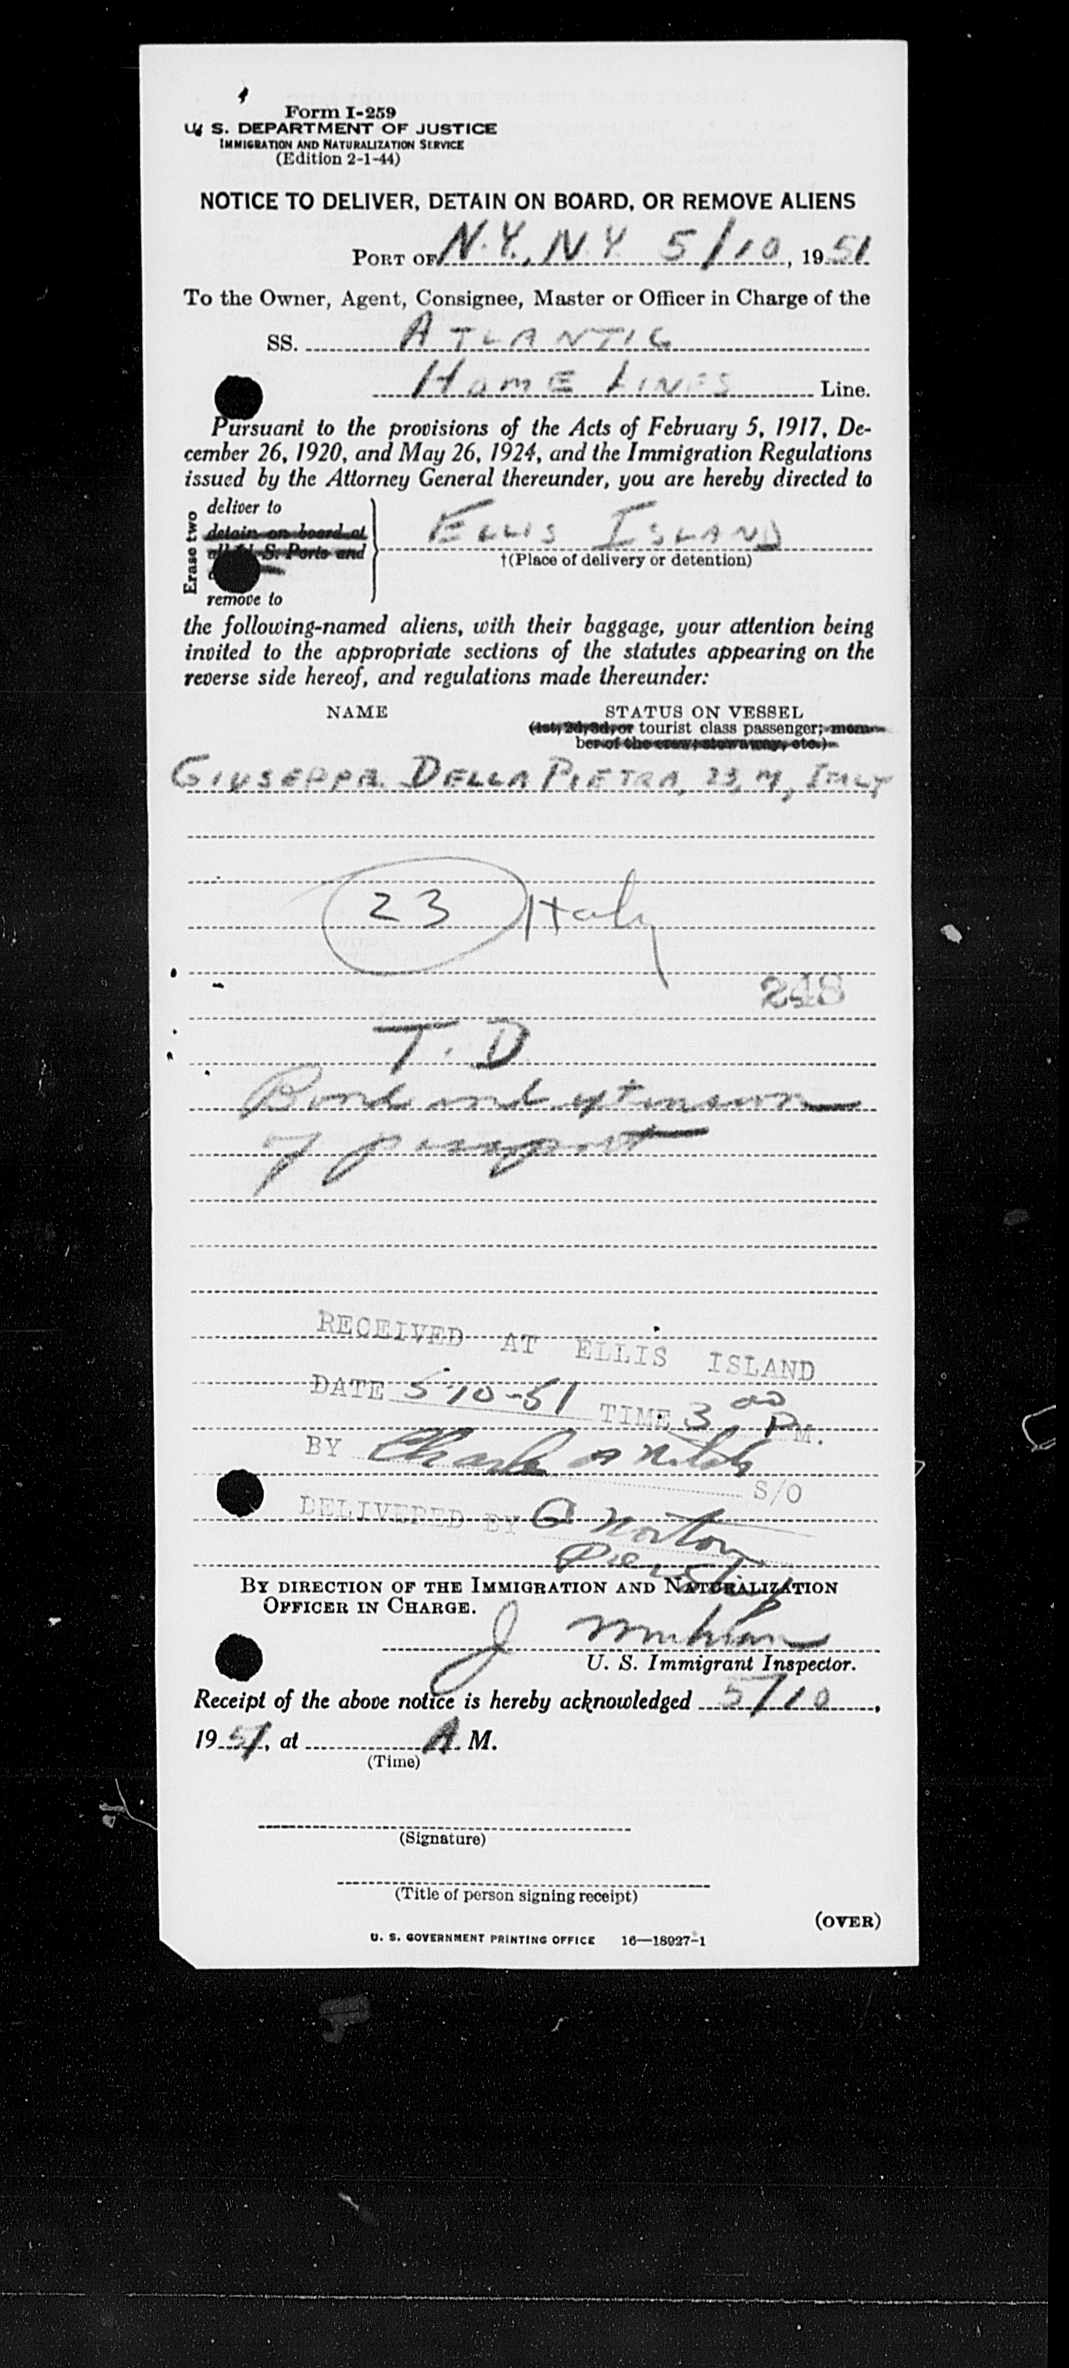 Form I-259
U. S. DEPARTMENT OF JUSTICE
IMMIGRATION AND NATURALIZATION SERVICE
(Edition 2-1-44)
NOTICE TO DELIVER, DETAIN ON BOARD, OR REMOVE ALIENS
PORT OF N.Y., N.Y. 5/10, 1951
To the Owner, Agent, Consignee, Master or Officer in Charge of the
SS. ATLANTIC
HOME LINES Line.
Pursuant to the provisions of the Acts of February 5, 1917, De-
cember 26, 1920, and May 26, 1924, and the Immigration Regulations
issued by the Attorney General thereunder, you are hereby directed to
Erase two
deliver to
detain on board at
all U. S. Ports and
remove to
ELLIS ISLAND
†(Place of delivery or detention)
the following-named aliens, with their baggage, your attention being
invited to the appropriate sections of the statutes appearing on the
reverse side hereof, and regulations made thereunder:
NAME STATUS ON VESSEL
(1st, 2d, 3d, or tourist class passenger; mem-
ber of the crew; stowaway, etc.)
GIUSEPPE DELLA PIETRA, 23, M, ITALY
23 Italy
248
T. D
Bond and extension
of passport
RECEIVED AT ELLIS ISLAND
DATE 5-10-51 TIME 3 00 P M.
BY Charles A
S/O
DELIVERED BY G Norton
BY DIRECTION OF THE IMMIGRATION AND NATURALIZATION
OFFICER IN CHARGE.
J
U. S. Immigrant Inspector.
Receipt of the above notice is hereby acknowledged 5/10,
1951, at A. M.
(Time)
(Signature)
(Title of person signing receipt)
(OVER)
U. S. GOVERNMENT PRINTING OFFICE 16—18927-1